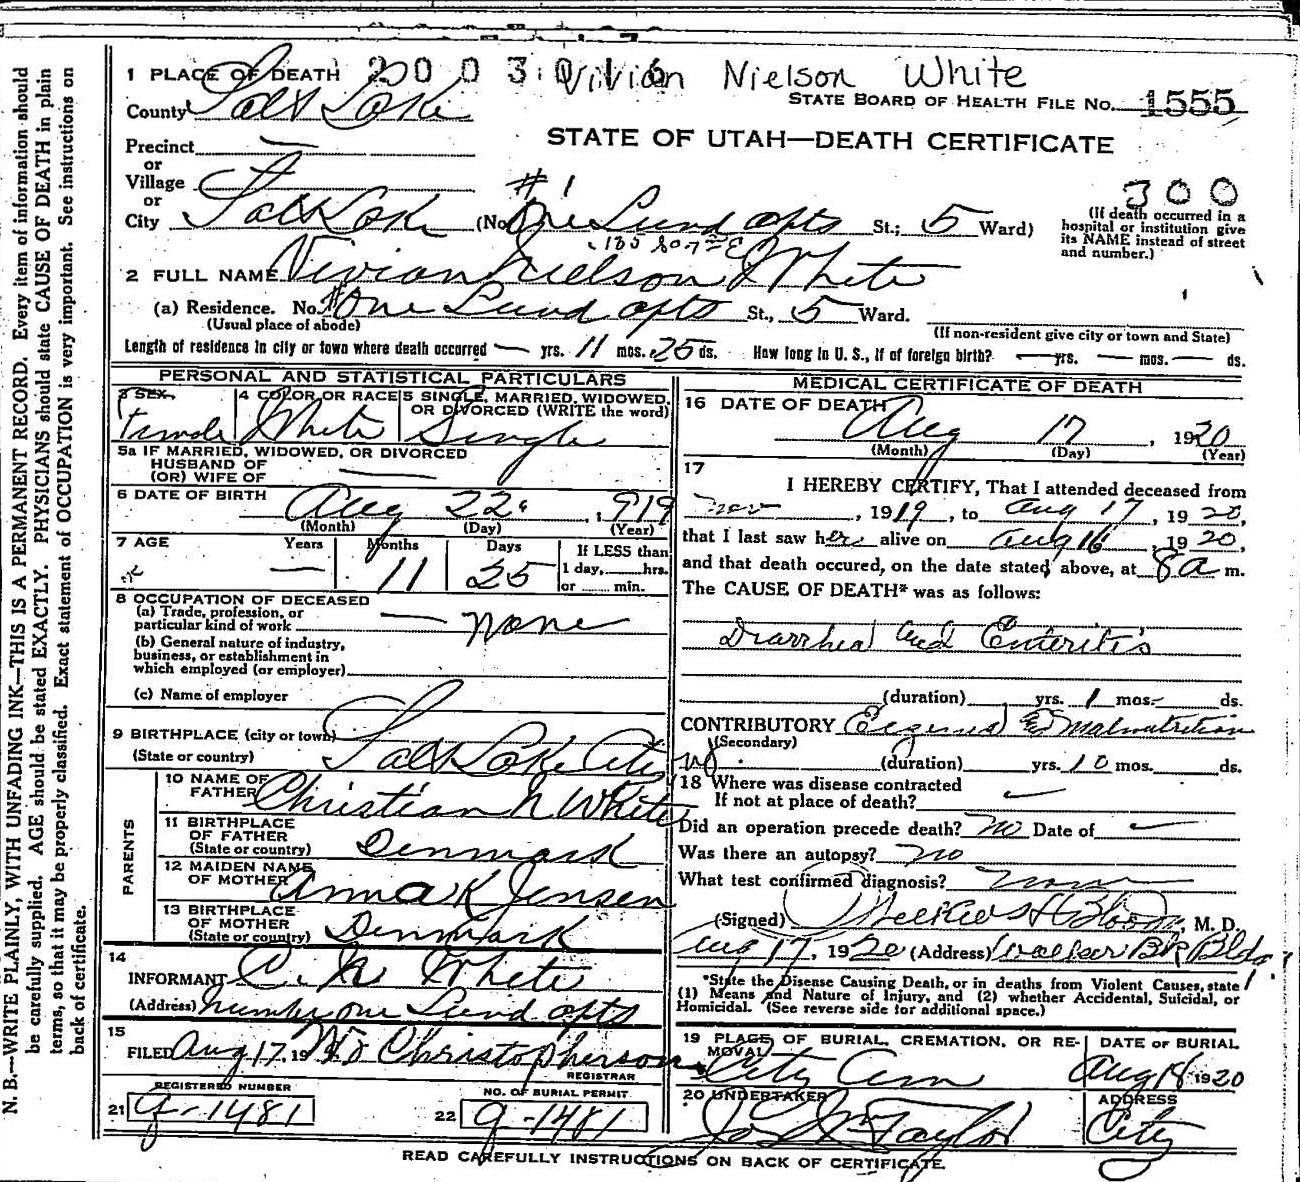 1 PLACE OF DEATH 2003016 Vivian Nielson White
County Salt Lake STATE BOARD OF HEALTH FILE NO. 1555
STATE OF UTAH—DEATH CERTIFICATE
Precinct —
or
Village
or
City Salt Lake (No. #1 One Lund apts St.; 5 Ward)
300
(If death occurred in a
hospital or institution give
its NAME instead of street
and number.)
2 FULL NAME Vivian Nielson White
(a) Residence. No. #One Lund apts St., 5 Ward.
(Usual place of abode) (If non-resident give city or town and State)
Length of residence in city or town where death occurred — yrs. 11 mos. 25 ds. How long in U. S., if of foreign birth? — yrs. — mos. — ds.
PERSONAL AND STATISTICAL PARTICULARS
3 SEX
Female
4 COLOR OR RACE
White
5 SINGLE, MARRIED, WIDOWED,
OR DIVORCED (WRITE the word)
Single
5a IF MARRIED, WIDOWED, OR DIVORCED
HUSBAND OF
(OR) WIFE OF —
6 DATE OF BIRTH Aug 22, 1919
(Month) (Day) (Year)
7 AGE Years Months Days If LESS than
— 11 25 1 day, hrs.
or min.
8 OCCUPATION OF DECEASED
(a) Trade, profession, or
particular kind of work — none
(b) General nature of industry,
business, or establishment in
which employed (or employer)
(c) Name of employer
9 BIRTHPLACE (city or town) Salt Lake City
(State or country)
PARENTS
10 NAME OF
FATHER Christian N White
11 BIRTHPLACE
OF FATHER
(State or country) Denmark
12 MAIDEN NAME
OF MOTHER Anna K Jensen
13 BIRTHPLACE
OF MOTHER
(State or country) Denmark
14
INFORMANT C. N. White
(Address) Number one Lund apts
15
FILED Aug 17, 19 Christopherson
REGISTRAR
REGISTERED NUMBER NO. OF BURIAL PERMIT
21 g-1481 22 g-1481
MEDICAL CERTIFICATE OF DEATH
16 DATE OF DEATH
Aug 17, 1920
(Month) (Day) (Year)
17
I HEREBY CERTIFY, That I attended deceased from
Nov, 1919, to Aug 17, 1920,
that I last saw her alive on Aug 16, 1920,
and that death occured, on the date stated above, at 8 a m.
The CAUSE OF DEATH* was as follows:
Diarrhea and Enteritis
(duration) yrs. 1 mos. ds.
CONTRIBUTORY Eczema & Malnutrition
(Secondary)
(duration) yrs. 10 mos. ds.
18 Where was disease contracted
If not at place of death?
Did an operation precede death? no Date of
Was there an autopsy? no
What test confirmed diagnosis?
(Signed) M. D.
Aug 17, 1920 (Address) Walker Bk Bldg
*State the Disease Causing Death, or in deaths from Violent Causes, state
(1) Means and Nature of Injury, and (2) whether Accidental, Suicidal, or
Homicidal. (See reverse side for additional space.)
19 PLACE OF BURIAL, CREMATION, OR RE-
MOVAL
City Cem
DATE OF BURIAL
Aug 18 1920
20 UNDERTAKER
Taylor
ADDRESS
City
READ CAREFULLY INSTRUCTIONS ON BACK OF CERTIFICATE.
N. B.—WRITE PLAINLY, WITH UNFADING INK—THIS IS A PERMANENT RECORD. Every item of information should
be carefully supplied. AGE should be stated EXACTLY. PHYSICIANS should state CAUSE OF DEATH in plain
terms, so that it may be properly classified. Exact statement of OCCUPATION is very important. See instructions on
back of certificate.